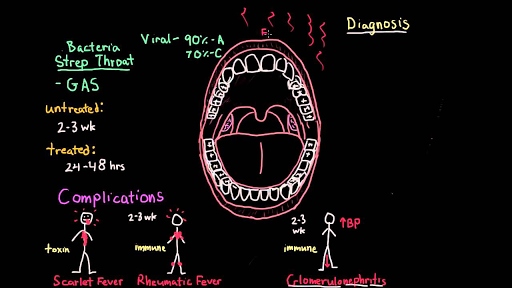 Diagnosis
Viral - 90%-A
70%-C
Bacteria
Strep Throat
- GAS
untreated:
2-3 wk
treated:
24-48 hrs
Complications
toxin
Scarlet Fever
2-3 wk
immune
Rheumatic Fever
2-3
wk
immune
↑BP
Glomerulonephritis